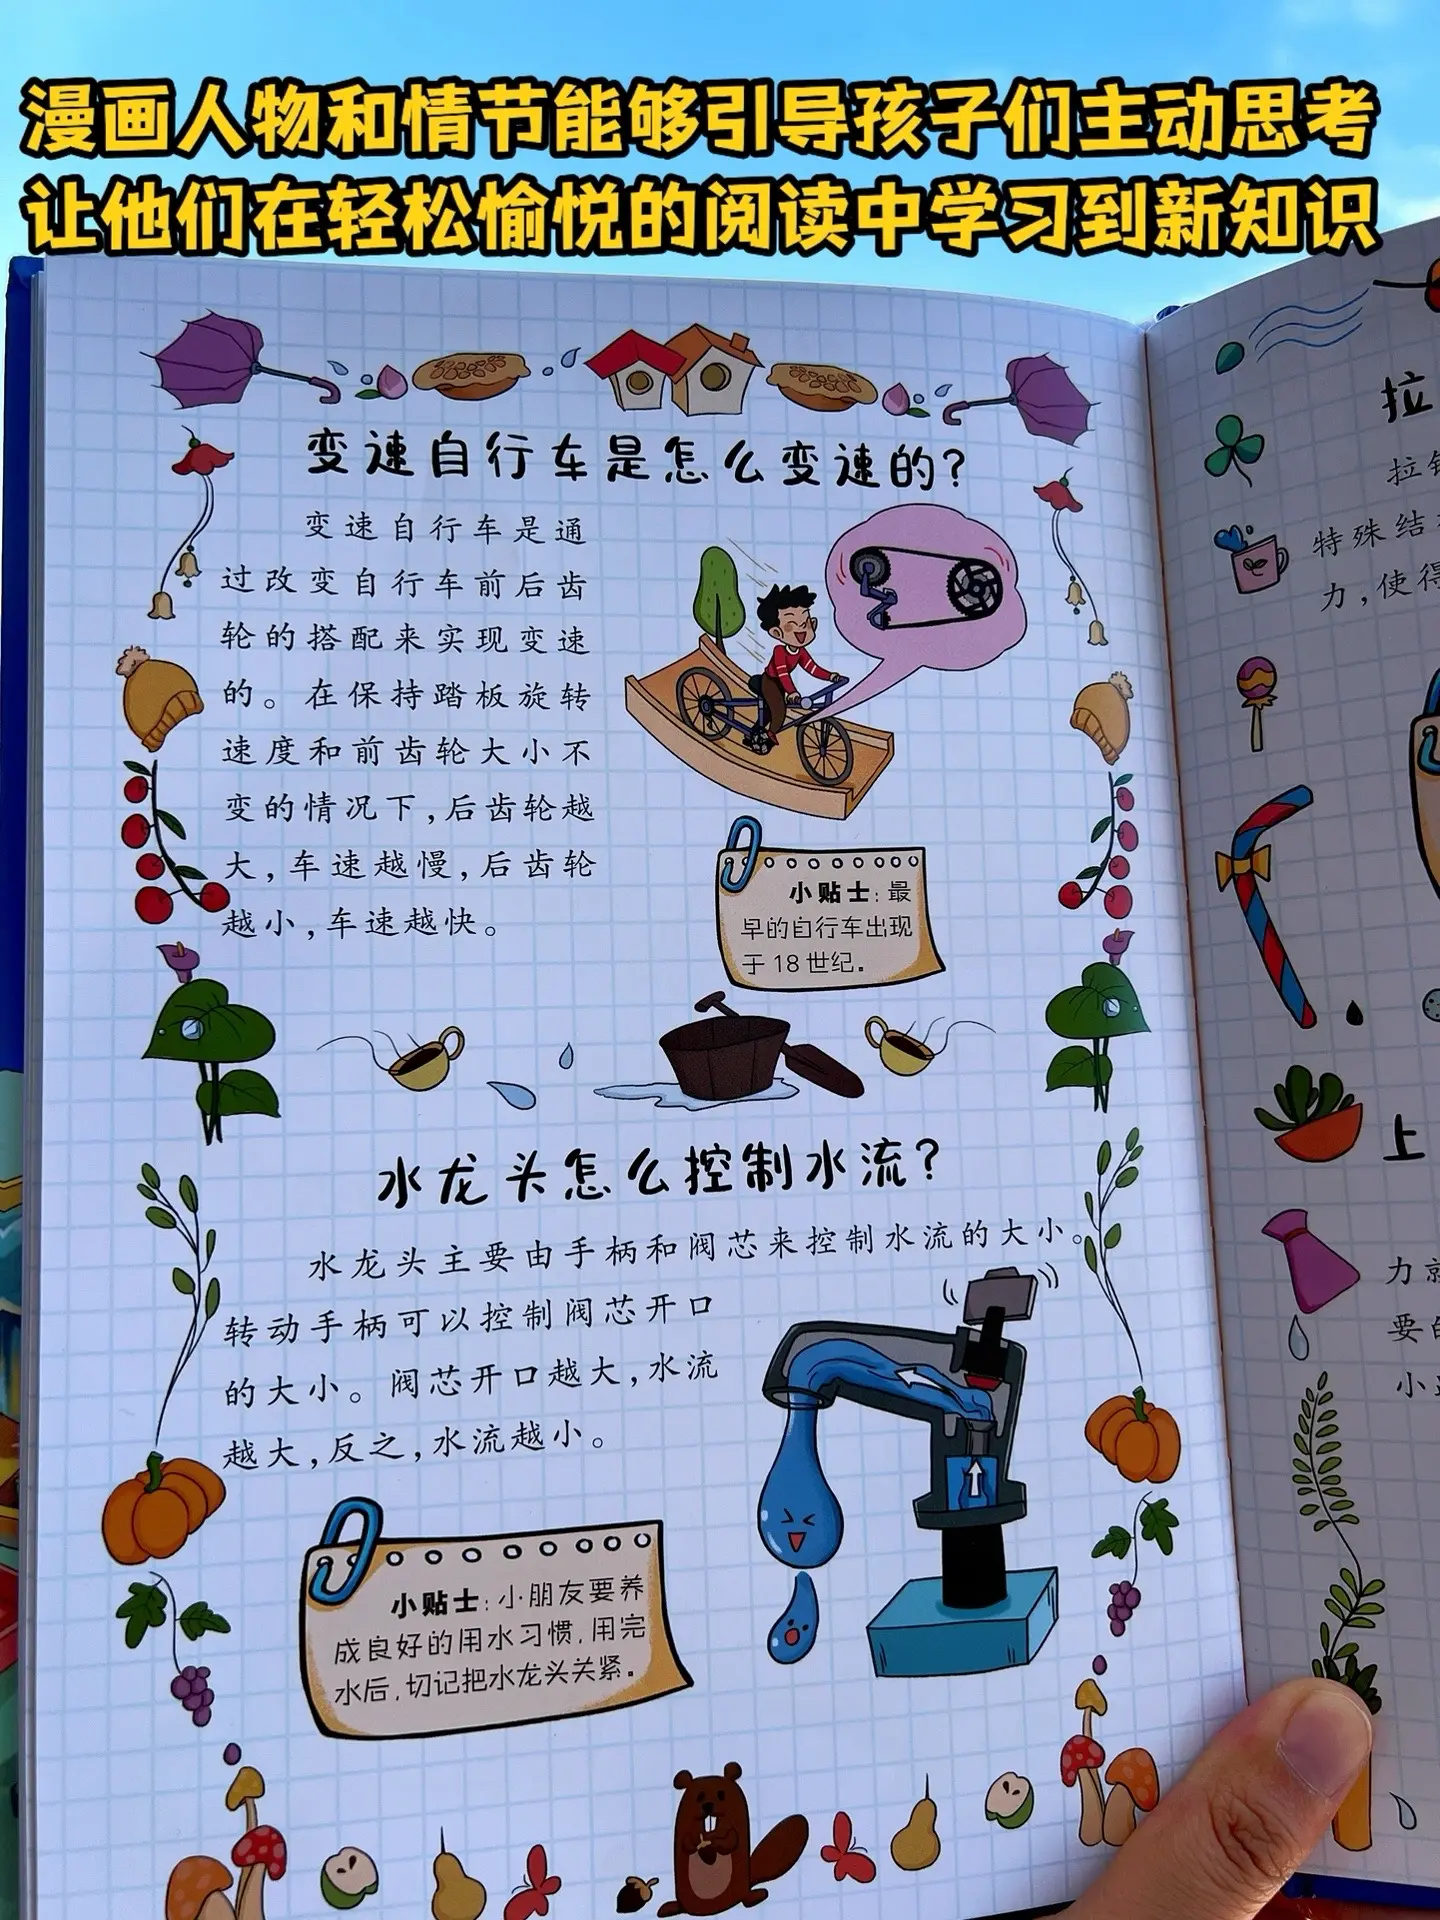 漫画人物和情节能够引导孩子们主动思考
让他们在轻松愉悦的阅读中学习到新知识
变速自行车是怎么变速的？
变速自行车是通
过改变自行车前后齿
轮的搭配来实现变速
的。在保持踏板旋转
速度和前齿轮大小不
变的情况下，后齿轮越
大，车速越慢，后齿轮
越小，车速越快。
小贴士：最
早的自行车出现
于18世纪。
水龙头怎么控制水流？
水龙头主要由手柄和阀芯来控制水流的大小。
转动手柄可以控制阀芯开口
的大小。阀芯开口越大，水流
越大，反之，水流越小。
小贴士：小朋友要养
成良好的用水习惯，用完
水后，切记把水龙头关紧。
拉
拉
特殊结
力，使得
上
力
要
小